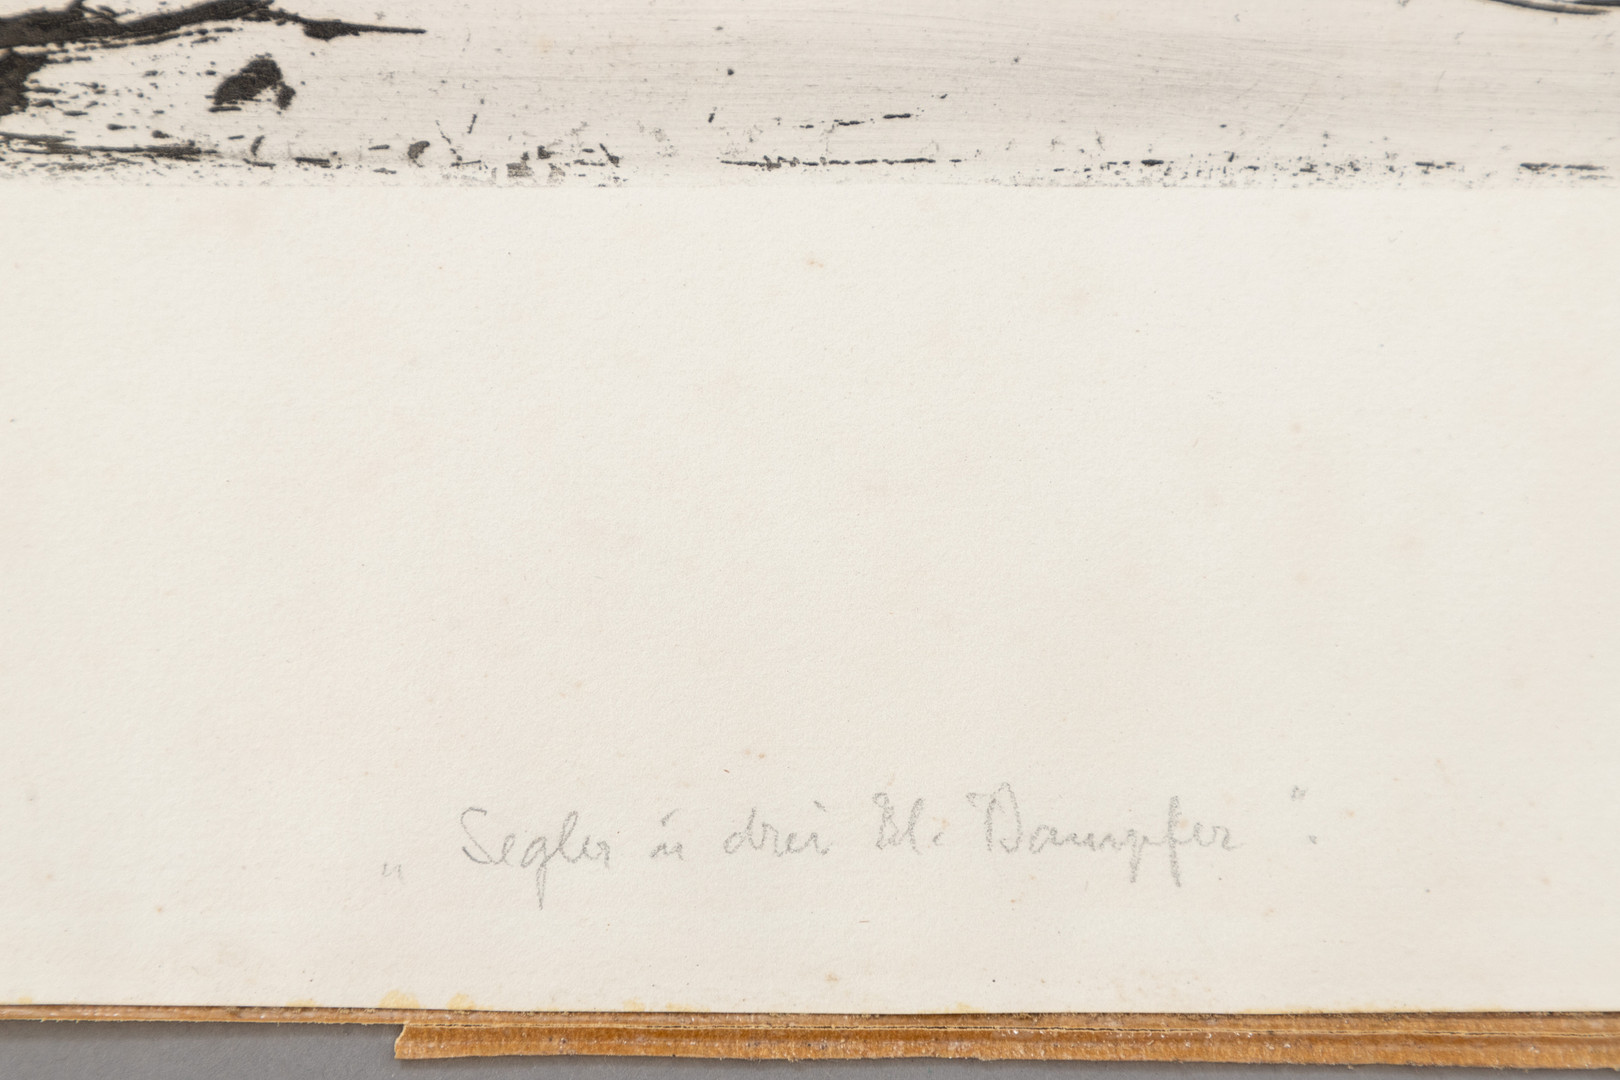 „Segler u drei kl. Dampfer".